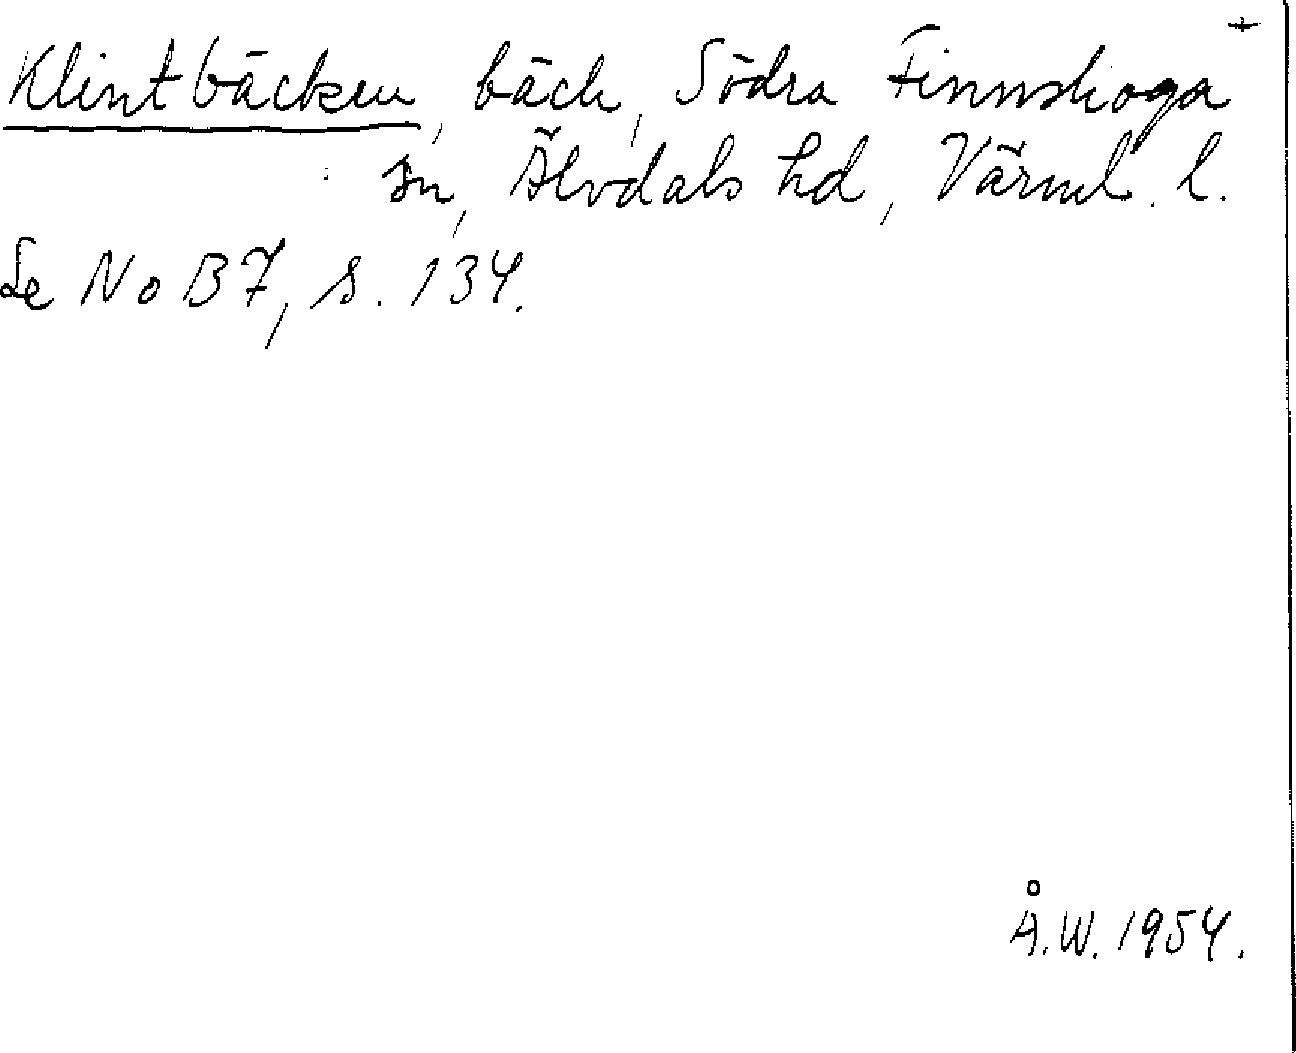 Klintbäcken, bäck, Södra Finnskoga
sn, Älvdals hd, Värml. l.
Se NoB 7, s. 134.
Å.W. 1954.